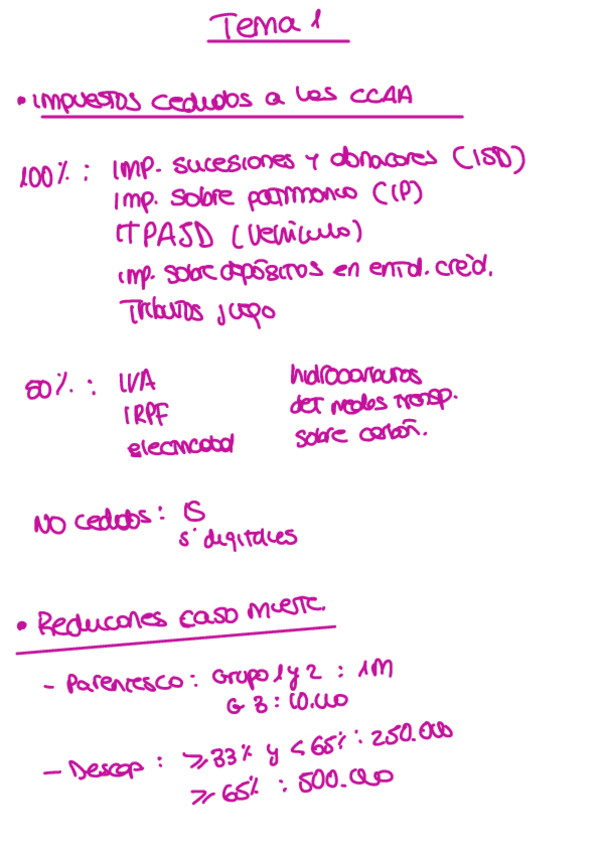 Tema 1
• impuestos cedidos a las CCAA
100% : imp. sucesiones y donaciones (ISD)
imp. sobre patrimonio (IP)
ITPAJD (vehículo)
imp. sobre depósitos en entid. créd.
Tributos juego
50% : IVA
IRPF
electricidad
hidrocarburos
det medios transp.
sobre carbón.
NO cedidos : IS
s. digitales
• Reducciones caso muerte.
- Parentesco : Grupo 1 y 2 : 1M
G 3 : 10.000
- Descap : ≥33% y <65% : 250.000
≥ 65% : 500.000